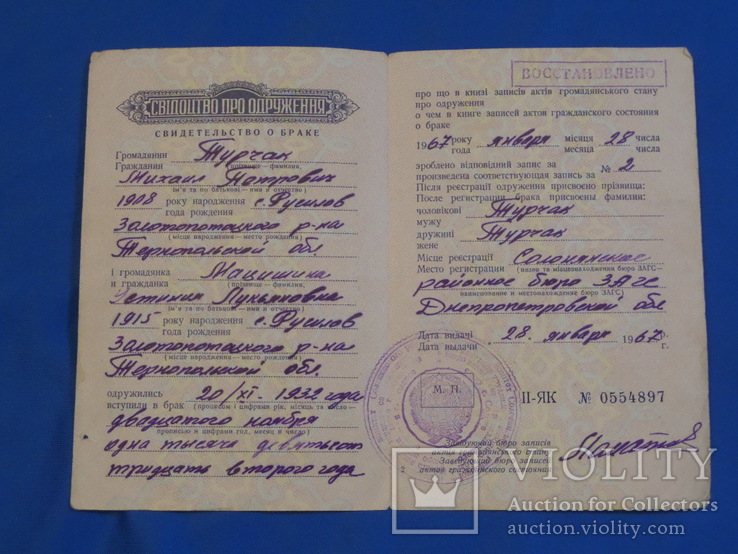 СВІДОЦТВО ПРО ОДРУЖЕННЯ
СВИДЕТЕЛЬСТВО О БРАКЕ
Громадянин Турчак
Гражданин (прізвище — фамилия,
Михаил Петрович
ім'я та по батькові — имя и отчество)
1908 року народження с. Русилов
года рождения
Золотопотоцкого р-на
(місце народження — место рождения)
Тернопольской обл.
і громадянка Мацишина
и гражданка (прізвище — фамилия,
Устиния Лукьяновна
ім'я та по батькові — имя и отчество)
1915 року народження с. Русилов
года рождения
Золотопотоцкого р-на
(місце народження — место рождения)
Тернопольской обл.
одружились 20/XI - 1932 года
вступили в брак (прописом і цифрами рік, місяць та число —
двадцатого ноября
прописью и цифрами год, месяц и число)
одна тысяча девятьсот
тридцать второго года
ВОССТАНОВЛЕНО
про що в книзі записів актів громадянського стану
про одруження
о чем в книге записей актов гражданского состояния
о браке
1967 року января місяця 28 числа
года месяца числа
зроблено відповідний запис за № 2
произведена соответствующая запись за
Після реєстрації одруження присвоєно прізвища:
После регистрации брака присвоены фамилии:
чоловікові Турчак
мужу
дружині Турчак
жене
Місце реєстрації Солонянское
Место регистрации (назва та місцезнаходження бюро ЗАГС —
районное бюро ЗАГС
наименование и местонахождение бюро ЗАГС)
Днепропетровской обл
Дата видачі 28. января 1967 р.
Дата выдачи г.
М. П.
II-ЯК № 0554897
Завідуючий бюро записів
актів громадянського стану
Заведующий бюро записей
актов гражданского состояния
VIOLITY
Auction for Collectors
auction.violity.com